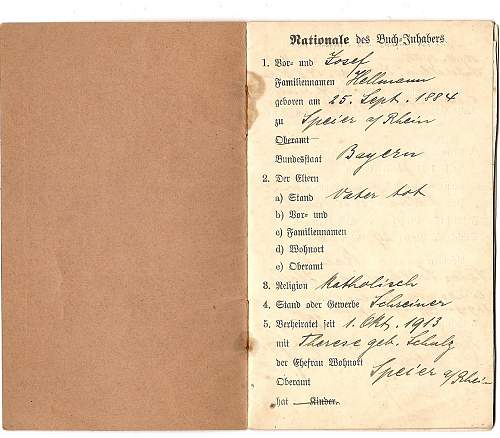 Nationale des Buch-Inhabers
1. Vor- und Josef
Familiennamen Hellmann
geboren am 25. Sept. 1884
zu Speier a/Rhein
Oberamt
Bundesstaat Bayern
2. Der Eltern
a) Stand Vater tot
b) Vor- und
c) Familiennamen
d) Wohnort
e) Oberamt
3. Religion Katholisch
4. Stand oder Gewerbe Schreiner
5. Verheiratet seit 1. Okt. 1913
mit Therese geb. Schulz
der Ehefrau Wohnort
Oberamt Speier a/Rhein
hat Kinder.